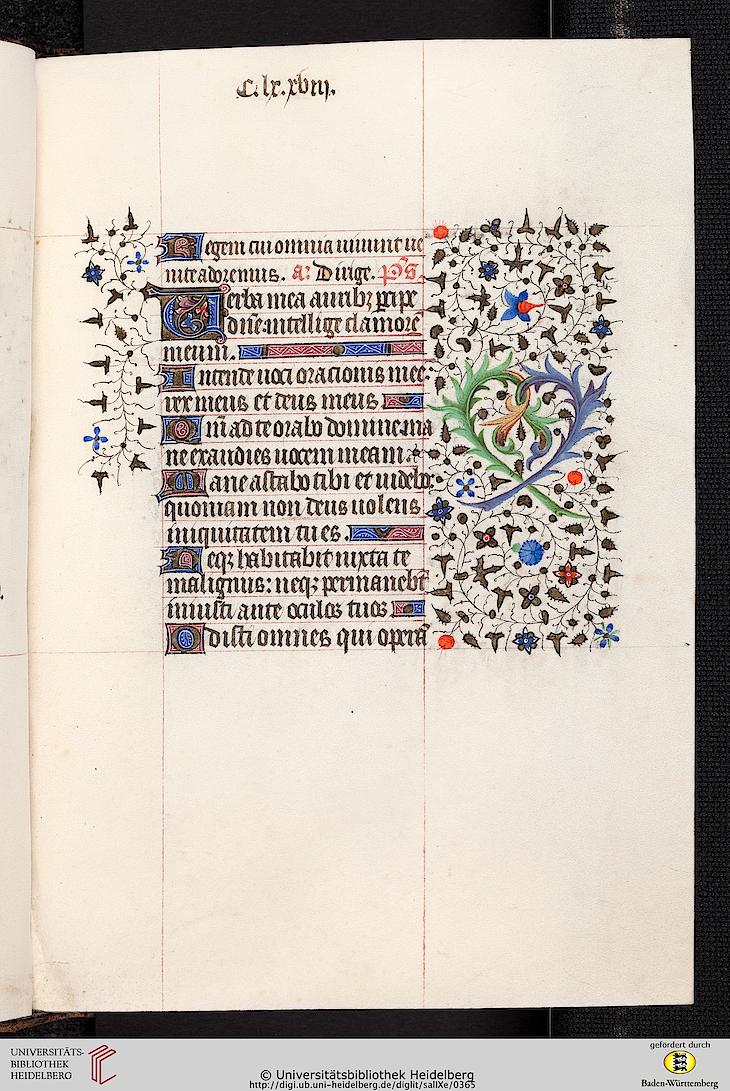 C.lx.xviij.
Regem cui omnia uiuunt ue
nite adoremus. a: Dirige. p̄s.
Uerba mea auribꝫ ꝑcipe
dōne intellige clamorē
meum.
Intende uoci orationis mee:
rex meus et deus meus
Qm̄ ad te orabo domine ma
ne exaudies uocem meam.
Mane astabo tibi et uidebo:
quoniam non deus uolens
iniquitatem tu es.
Neqꝫ habitabit iuxta te
malignus: neqꝫ permanebt̄
iniusti ante oculos tuos
Odisti omnes qui operā
UNIVERSITÄTS-
BIBLIOTHEK
HEIDELBERG
© Universitätsbibliothek Heidelberg
http://digi.ub.uni-heidelberg.de/diglit/salIXe/0365
gefördert durch
Baden-Württemberg